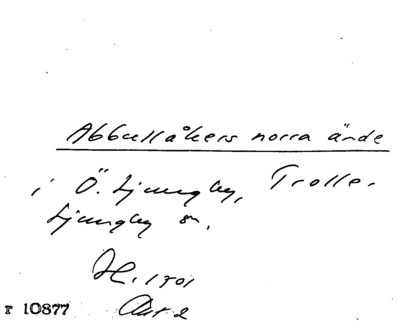 Abbullåkers norra ände
i Ö. Ljungby, Trolle-
Ljungby sn.
H. 1701
r 10877 Akt 2